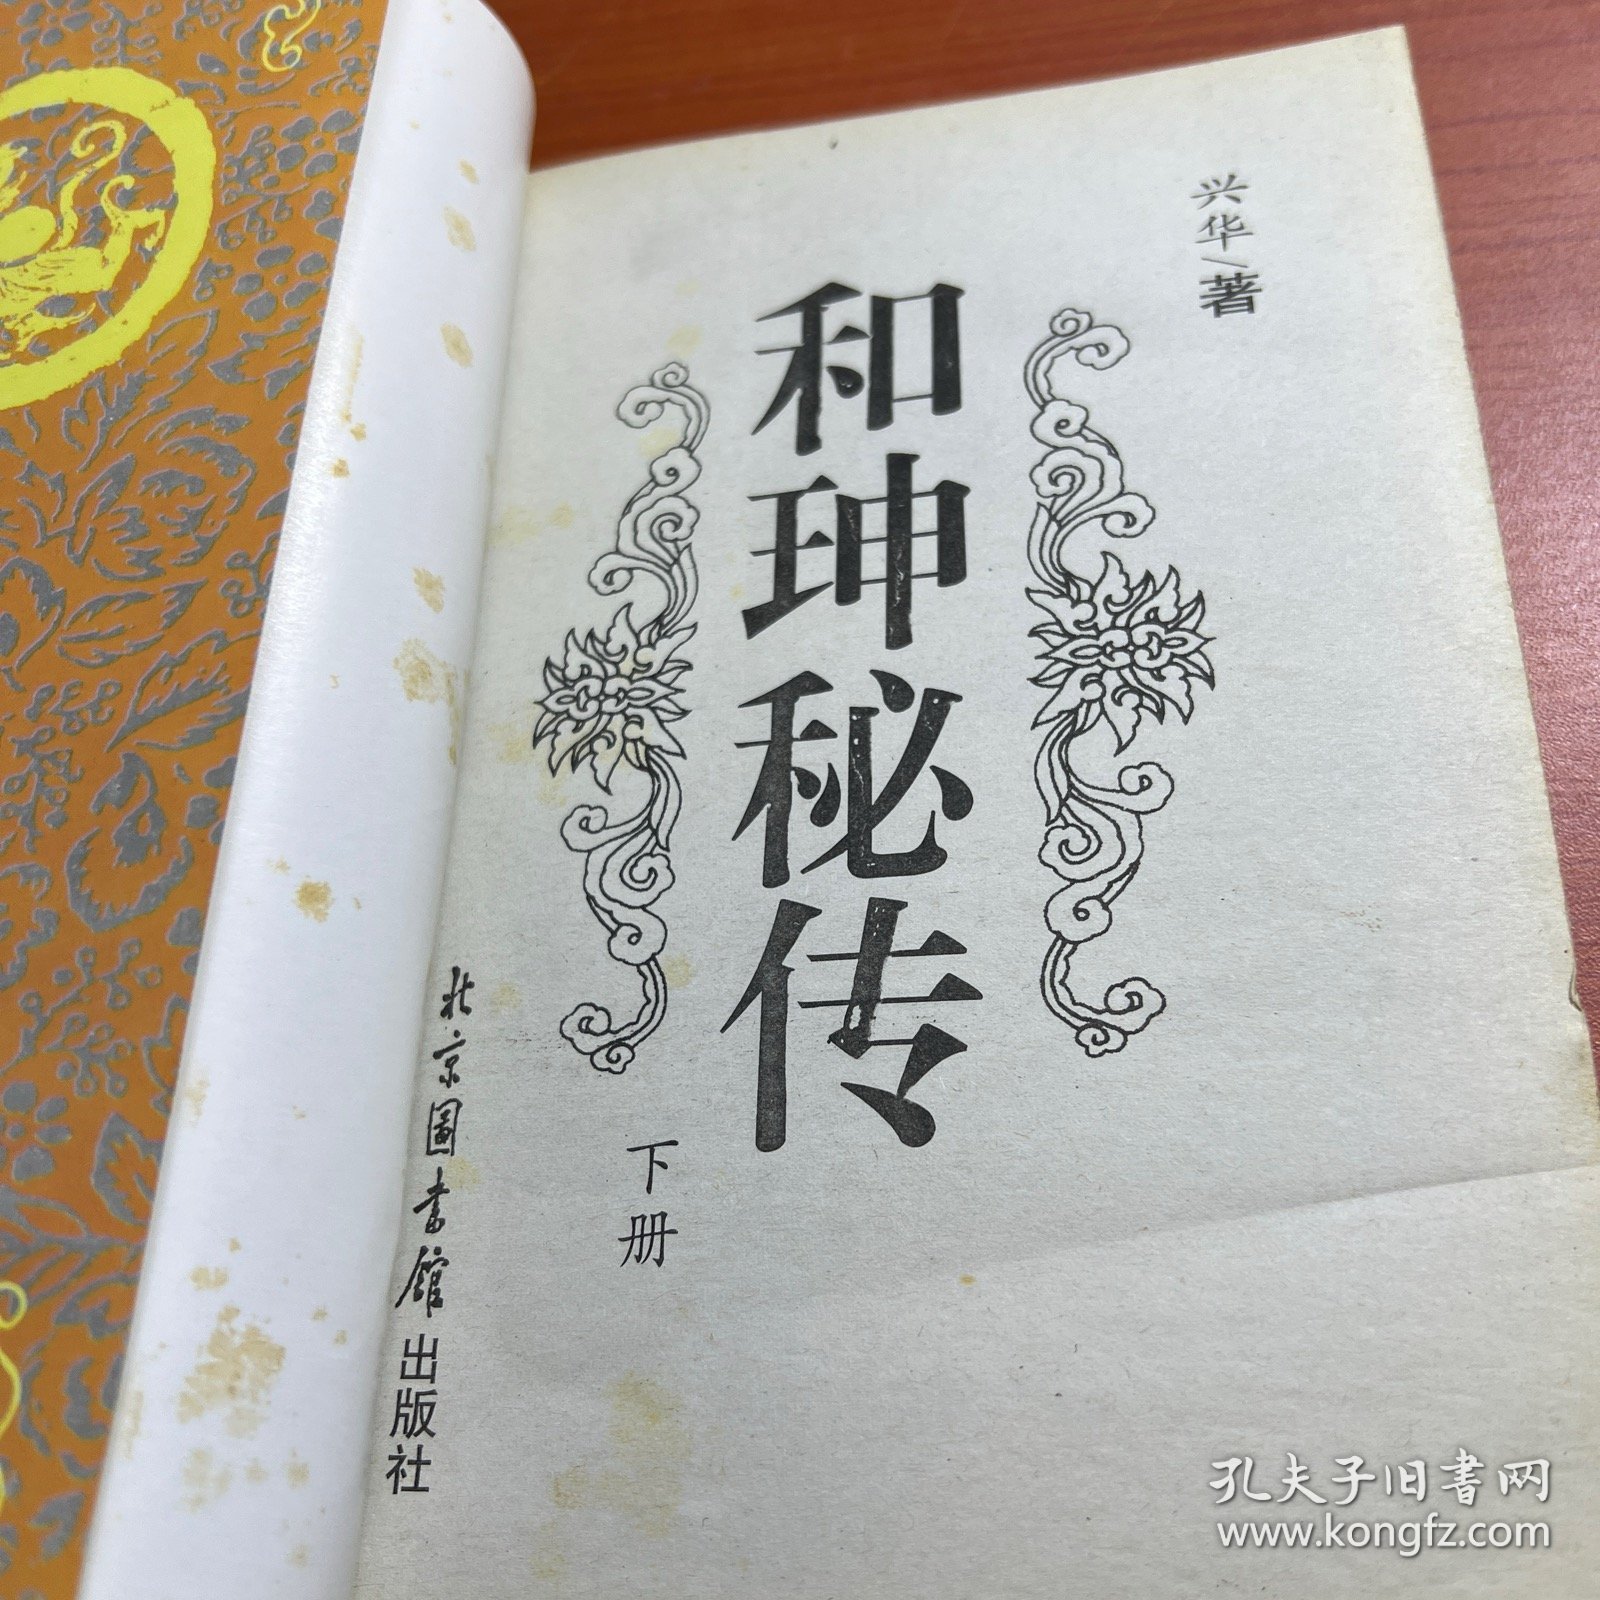 兴华/著
和珅秘传
下册
北京圖書館出版社
孔夫子旧书网
www.kongfz.com